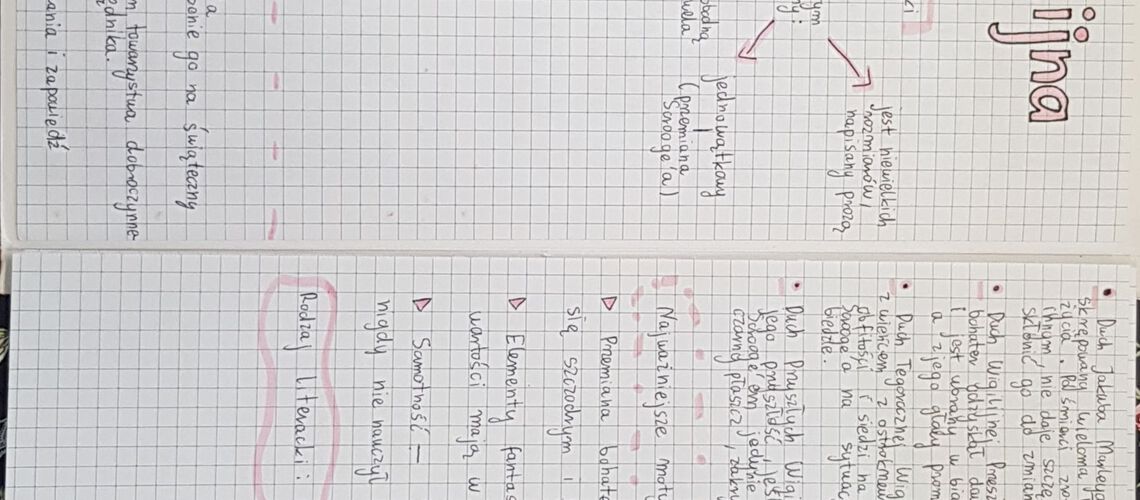 ijna
jest niewielkich
rozmiarów,
napisany prozą
jednowątkowy
(przemiana
Scrooge'a)
ponie go na świąteczny
m towarzystwa dobroczynne-
ędnika.
ania i zapowiedź
• Duch Jakuba Marley
skrępowana wieloma
życia. Po śmierci
innym, nie dale
skłonić go do zmian
• Duch Wigilijnej Prze
bohater odzyskał da
i jest ubrany w bia
a z jego głowy prom
• Duch Tegorocznej Wig
z wieńcem z ostrokrzew
obfitości i siedzi na
Scrooge'a na sytuac
biedze.
• Duch Przyszłych Wigi
jego przyszłość, jest
Scrooge'em jedynie
czarny płaszcz, zakry
Najważniejsze moty
▷ Przemiana bohate
się szczodrym i
▷ Elementy fantas
wartości mają w
▷ Samotność –
nigdy nie nauczył
Rodzaj literacki: